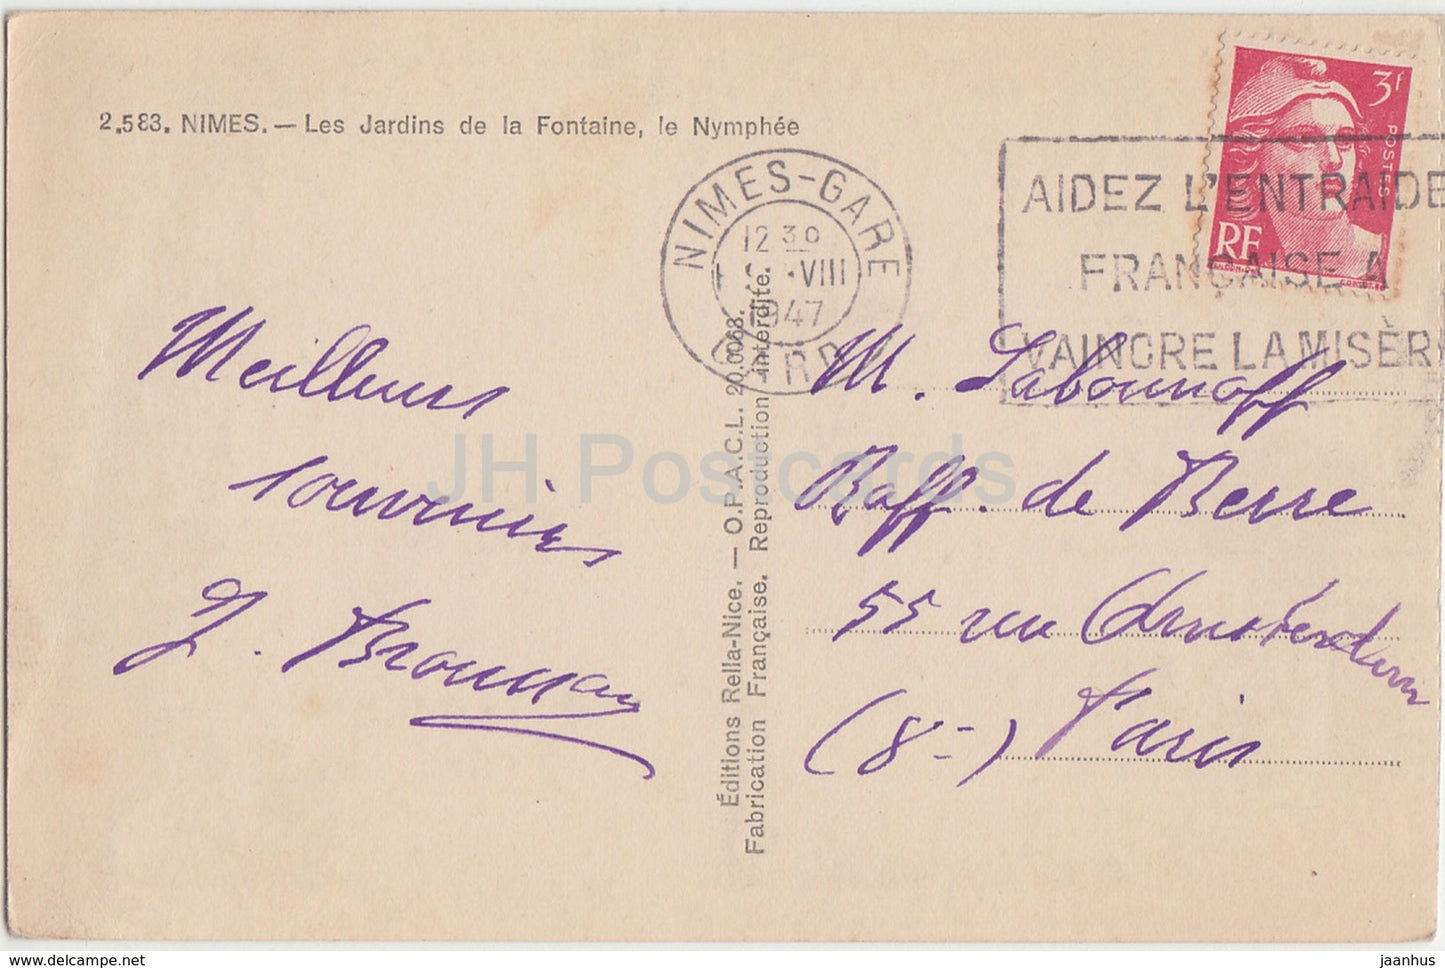 2.583. NIMES. — Les Jardins de la Fontaine, le Nymphée
NIMES-GARE
12 30
VIII
1947
GARD
3f
POSTES
RF
AIDEZ L'ENTRAIDE
FRANÇAISE A
VAINCRE LA MISÈR
Meilleurs
souvenirs
Éditions Rella-Nice. — O.P.A.C.L. 20.0068.
Fabrication Française. Reproduction interdite.
M. Labounoff
Raff. de Berre
55 rue Amsterdam
(8e) Paris
JH Postcards
jaanhus — www.delcampe.net